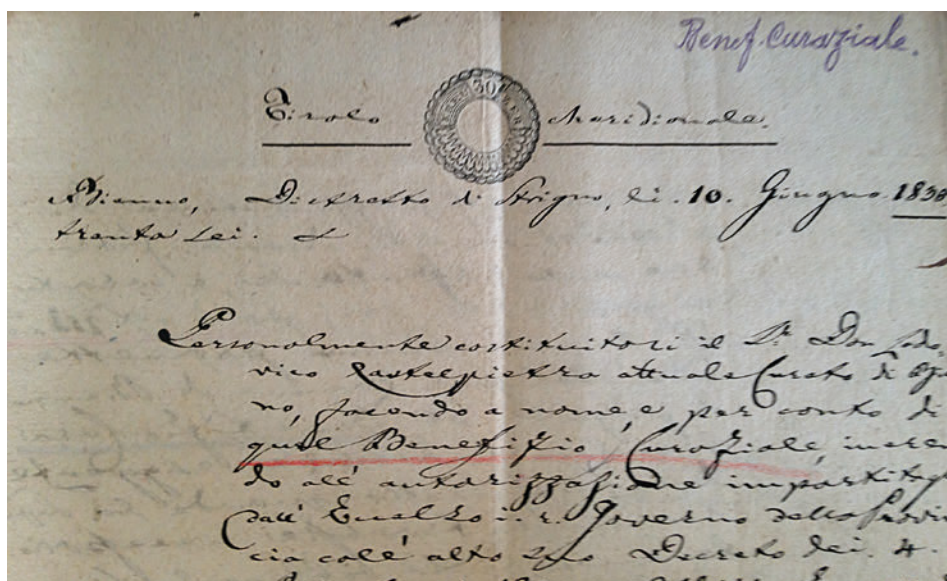 Benef. Curaziale.
Tirolo 30 Meridionale.
Distretto di Strigno, li. 10. Giugno. 1836
trenta sei.
Personalmente costituitosi il Sr. Don Lodo,
vico Castelpietra attuale Curato di
no, facendo a nome, e per conto di
quel Benefizio Curaziale, ineren
do all' autorizzazione impartitag
dall' Eccelso i. r. Governo della Provi
cia coll' alto suo Decreto dei. 4.